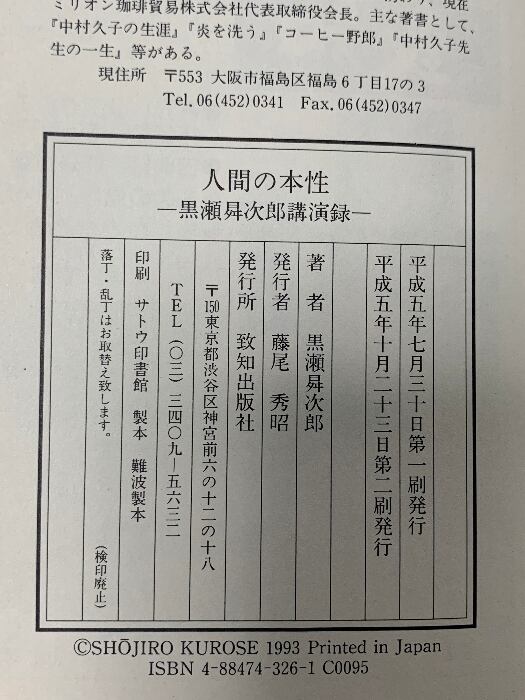 ミリオン珈琲貿易株式会社代表取締役会長。主な著書として、
『中村久子の生涯』『炎を洗う』『コーヒー野郎』『中村久子先
生の一生』等がある。
現住所 〒553 大阪市福島区福島6丁目17の3
Tel. 06(452)0341 Fax. 06(452)0347
人間の本性
―黒瀬曻次郎講演録―
平成五年七月三十日第一刷発行
平成五年十月二十三日第二刷発行
著者 黒瀬曻次郎
発行者 藤尾秀昭
発行所 致知出版社
〒150東京都渋谷区神宮前六の十二の十八
TEL(〇三)三四〇九―五六三二
印刷 サトウ印書館 製本 難波製本
落丁・乱丁はお取替え致します。
(検印廃止)
©SHŌJIRO KUROSE 1993 Printed in Japan
ISBN 4-88474-326-1 C0095